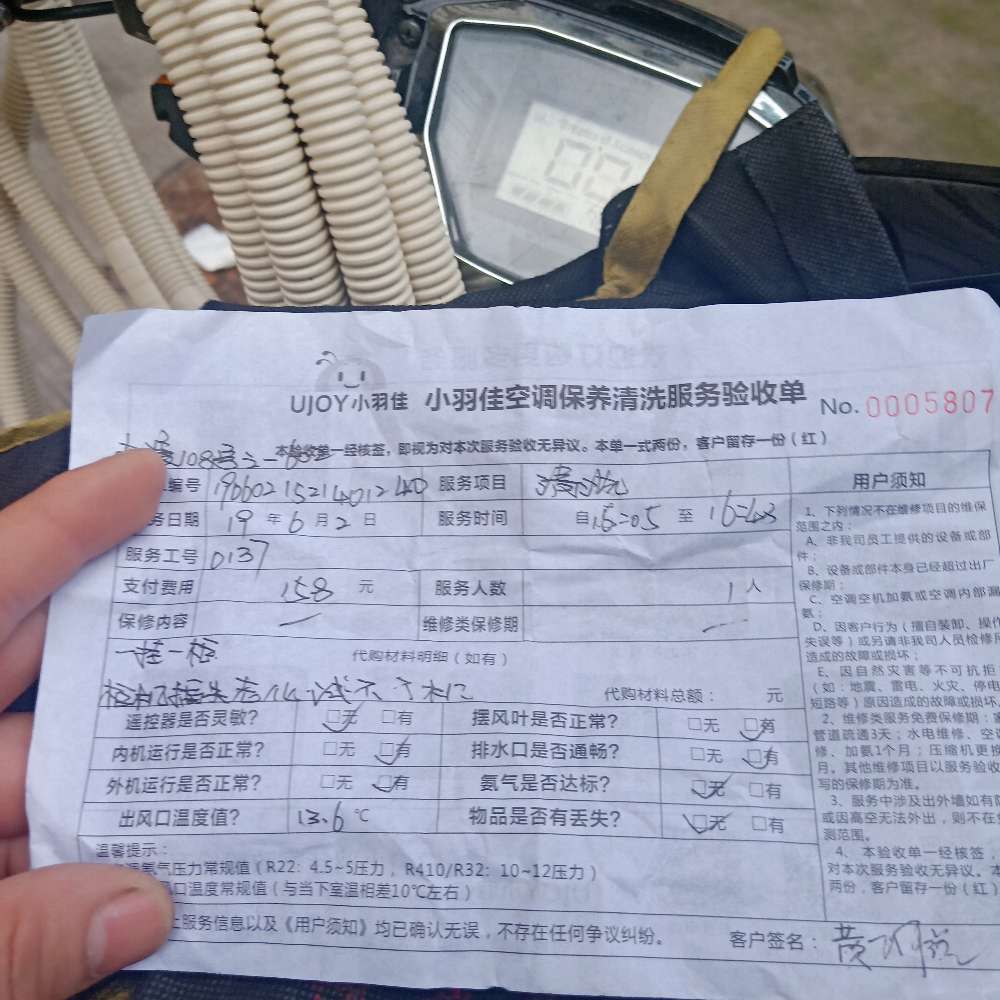 UJOY小羽佳 小羽佳空调保养清洗服务验收单 No. 0005807
本验收单一经核签，即视为对本次服务验收无异议。本单一式两份，客户留存一份（红）
108
编号 1966021521401240 服务项目 清洗 用户须知
务日期 19 年 6 月 2 日 服务时间 自 15=05 至 16=43
服务工号 0137
支付费用 158 元 服务人数 1 人
保修内容 一 维修类保修期 一
一挂一柜 代购材料明细（如有）
代购材料总额： 元
遥控器是否灵敏？ □无 □有 摆风叶是否正常？ □无 □有
内机运行是否正常？ □无 □有 排水口是否通畅？ □无 □有
外机运行是否正常？ □无 □有 氨气是否达标？ □无 □有
出风口温度值？ 13.6 ℃ 物品是否有丢失？ □无 □有
温馨提示：
氨气压力常规值（R22：4.5~5压力，R410/R32：10~12压力）
口温度常规值（与当下室温相差10℃左右）
上服务信息以及《用户须知》均已确认无误，不存在任何争议纠纷。 客户签名： 黄
1、下列情况不在维修项目的维保
范围之内：
A、非我司员工提供的设备或部
件；
B、设备或部件本身已经超过出厂
保修期；
C、空调空机加氨或空调内部漏
氨；
D、因客户行为（擅自装卸、操作
失误等）或另请非我司人员检修所
造成的故障或损坏；
E、因自然灾害等不可抗拒
（如：地震、雷电、火灾、停电
短路等）原因造成的故障或损坏
2、维修类服务免费保修期：
管道疏通3天；水电维修、空
修、加氨1个月；压缩机更换
月。其他维修项目以服务验收
写的保修期为准。
3、服务中涉及出外墙如有
或因高空无法外出，则不在
测范围。
4、本验收单一经核签，
对本次服务验收无异议。本
两份，客户留存一份（红）